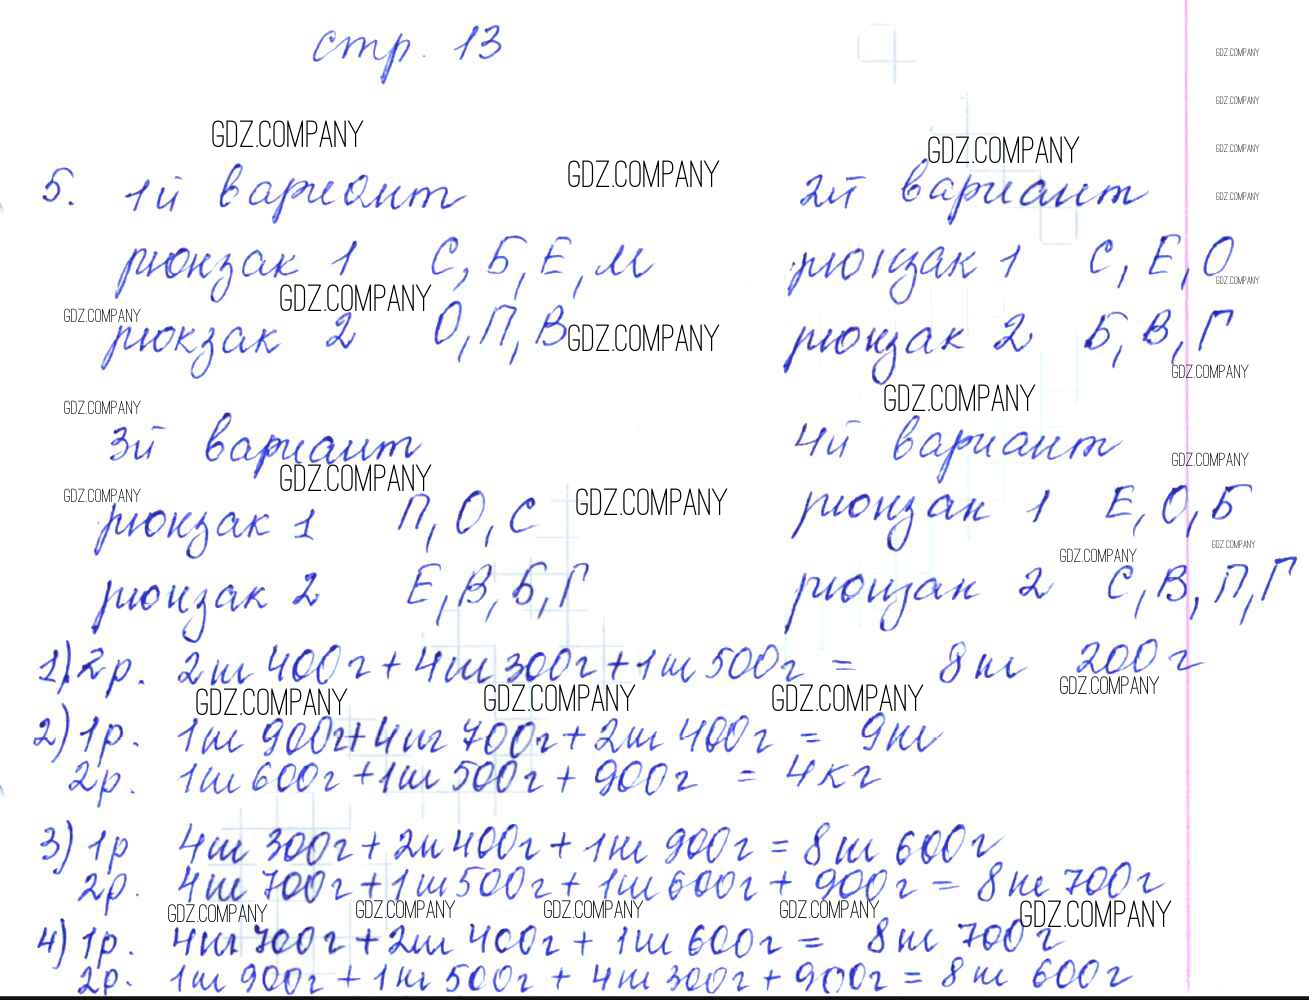 стр. 13
GDZ.COMPANY
GDZ.COMPANY
GDZ.COMPANY
GDZ.COMPANY
GDZ.COMPANY
GDZ.COMPANY
GDZ.COMPANY
5. 1й вариант 2й вариант
рюкзак 1 С, Б, Е, М рюкзак 1 С, Е, О
GDZ.COMPANY GDZ.COMPANY
GDZ.COMPANY
рюкзак 2 О, П, В рюкзак 2 Б, В, Г
GDZ.COMPANY
GDZ.COMPANY
GDZ.COMPANY
GDZ.COMPANY
3й вариант 4й вариант
GDZ.COMPANY
GDZ.COMPANY
GDZ.COMPANY
GDZ.COMPANY
рюкзак 1 П, О, С рюкзак 1 Е, О, Б
GDZ.COMPANY
GDZ.COMPANY
рюкзак 2 Е, В, Б, Г рюкзак 2 С, В, П, Г
1) 2р. 2кг 400г + 4кг 300г + 1кг 500г = 8кг 200г
GDZ.COMPANY GDZ.COMPANY GDZ.COMPANY GDZ.COMPANY
2) 1р. 1кг 900г + 4кг 700г + 2кг 400г = 9кг
2р. 1кг 600г + 1кг 500г + 900г = 4кг
3) 1р 4кг 300г + 2кг 400г + 1кг 900г = 8кг 600г
2р. 4кг 700г + 1кг 500г + 1кг 600г + 900г = 8кг 700г
GDZ.COMPANY GDZ.COMPANY GDZ.COMPANY GDZ.COMPANY GDZ.COMPANY
4) 1р. 4кг 700г + 2кг 400г + 1кг 600г = 8кг 700г
2р. 1кг 900г + 1кг 500г + 4кг 300г + 900г = 8кг 600г